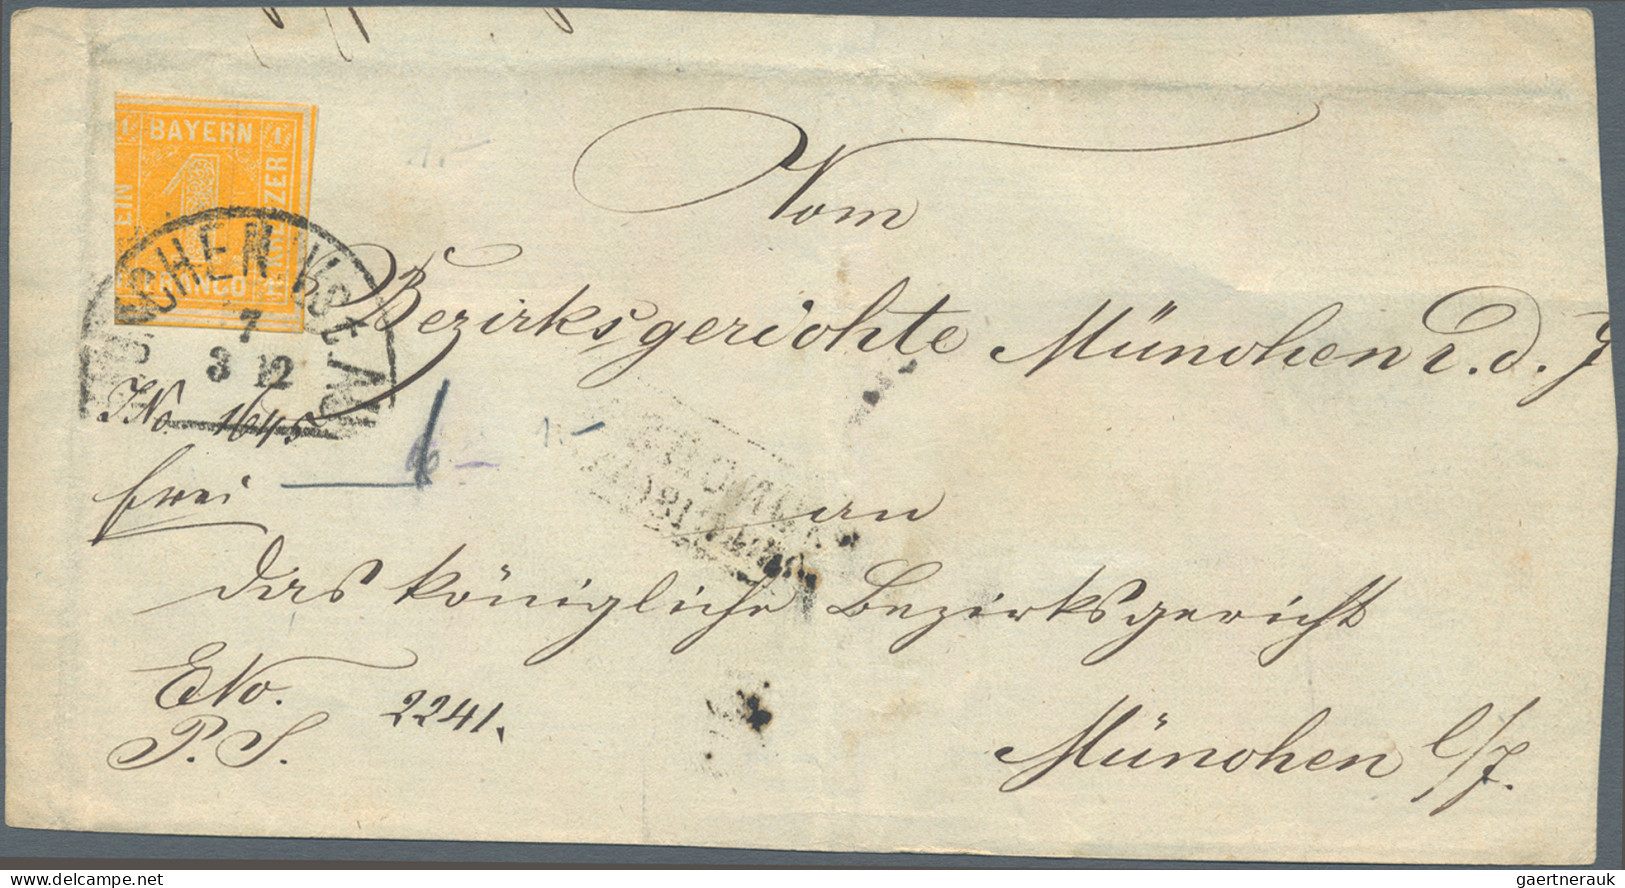 1 BAYERN 1
EIN 1 KREUZER
FRANCO
MÜNCHEN
7
3 12
Vom
Bezirksgerichte München r. d. J
INo. 1645
frei
an
das königliche Bezirksgericht
ENo. 2241.
P. S.
München l/J.
delcampe.net
gaertnerauk